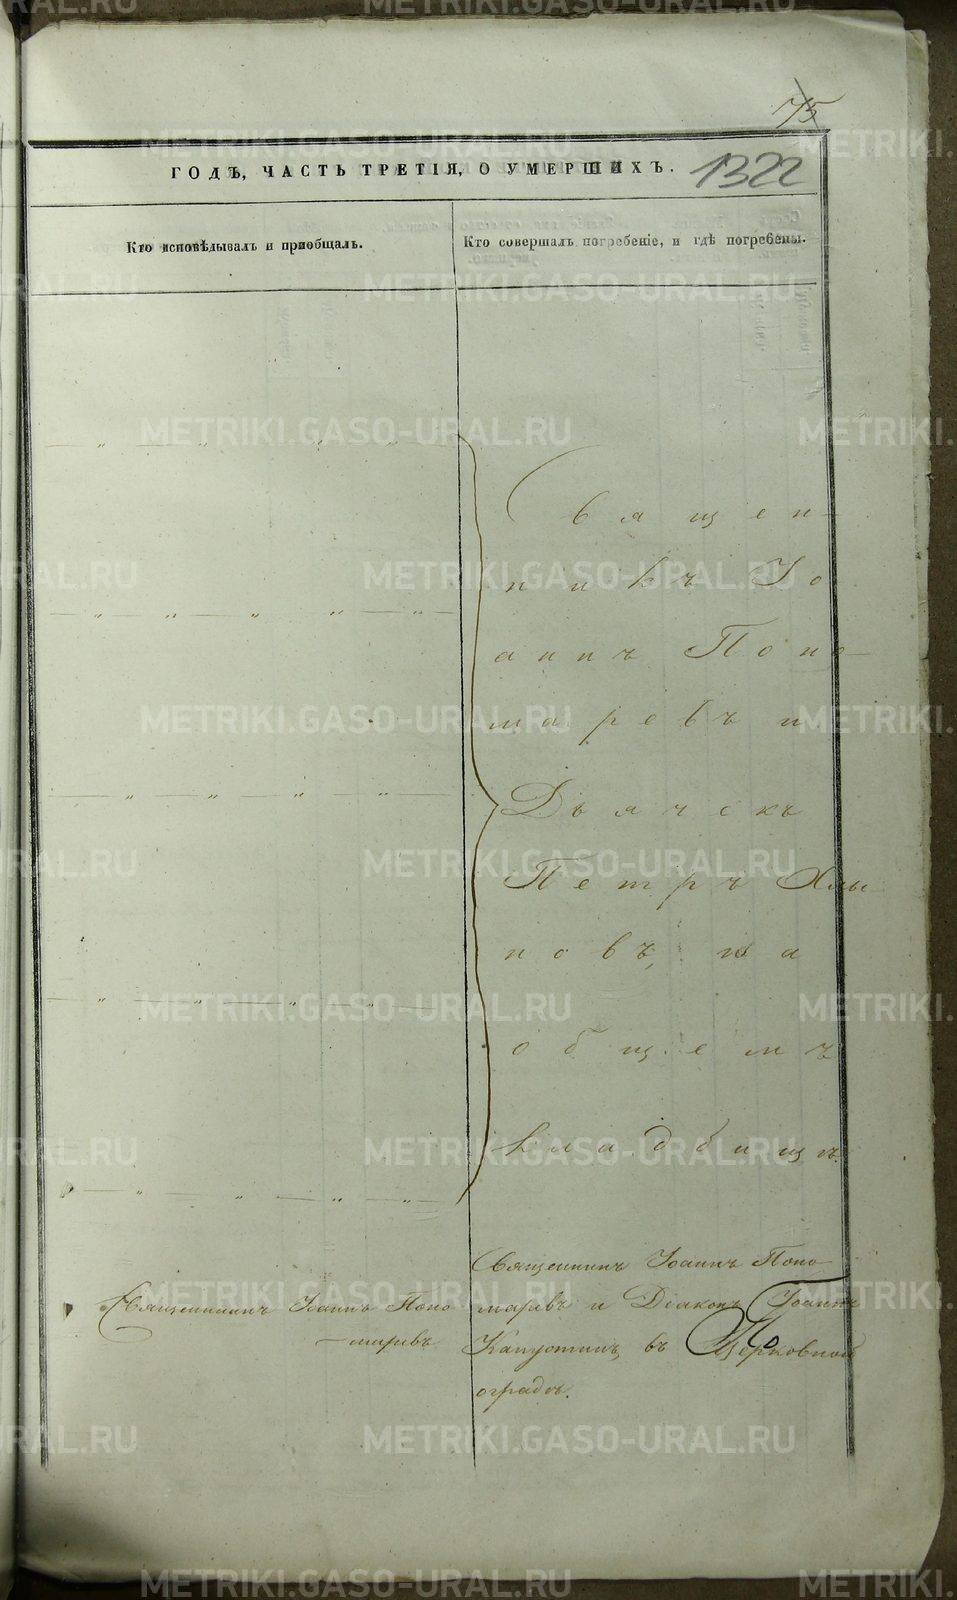 75
1322
ГОДЪ, ЧАСТЬ ТРЕТІЯ, О УМЕРШИХЪ.
Кто исповѣдывалъ и пріобщалъ.
Кто совершалъ погребеніе, и гдѣ погребены.
Свящеn-
никъ Іо
аннъ Поно-
маревъ и
Дьячекъ
Петръ Хлы
новъ, на
общемъ
кладбищѣ.
Священникъ Іоаннъ Поно
маревъ
Священникъ Іоаннъ Поно-
маревъ и Діаконъ Іоаннъ
Капустинъ, въ Церковной
оградѣ.
По
METRIKI.GASO-URAL.RU